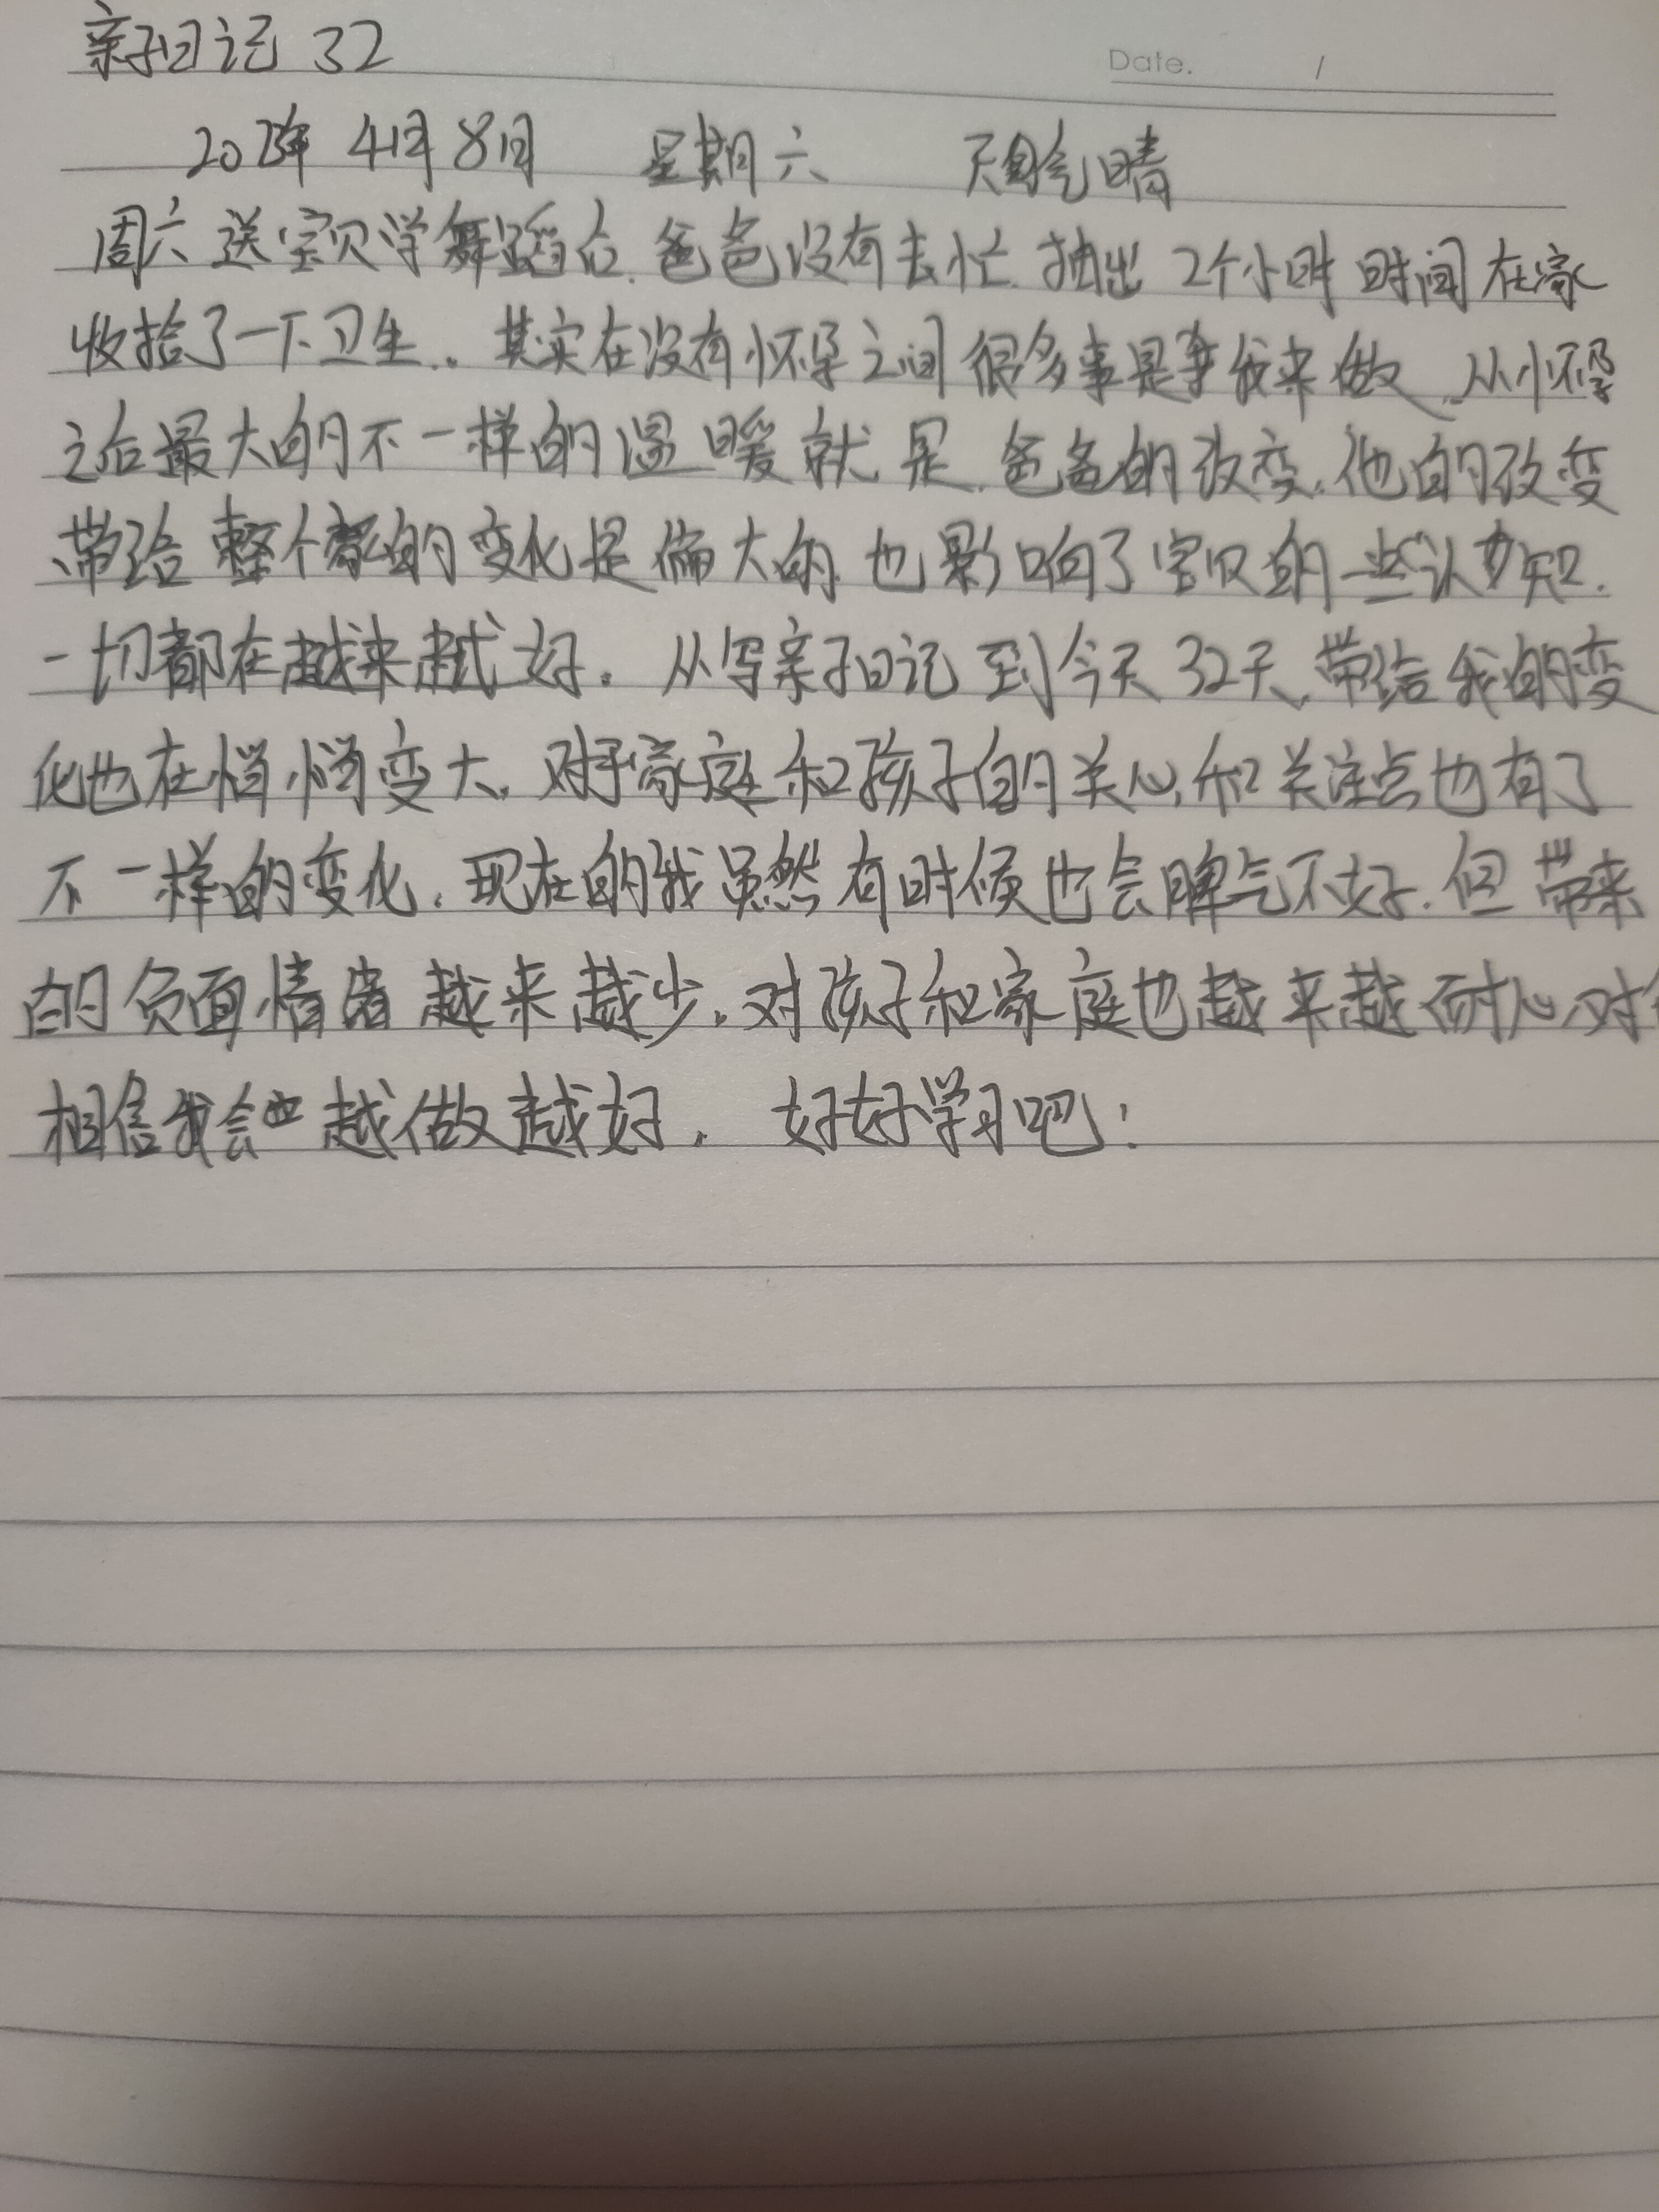 亲子日记 32
Date. /
2023年 4月 8日 星期六 天气晴
周六送宝贝学舞蹈后.爸爸没有去忙.抽出2个小时时间在家
收拾了一下卫生.其实在没有怀孕之间很多事是我来做.从怀孕
之后最大的不一样的温暖就是.爸爸的改变.他的改变
带给整个家的变化是偏大的.也影响了宝贝的一些认知.
一切都在越来越好。从写亲子日记到今天32天.带给我的变
化也在悄悄变大.对于家庭和孩子的关心和关注点也有了
不一样的变化.现在的我虽然有时候也会脾气不好.但带来
的负面情绪越来越少.对孩子和家庭也越来越耐心.对
相信我会越做越好. 好好学习吧!